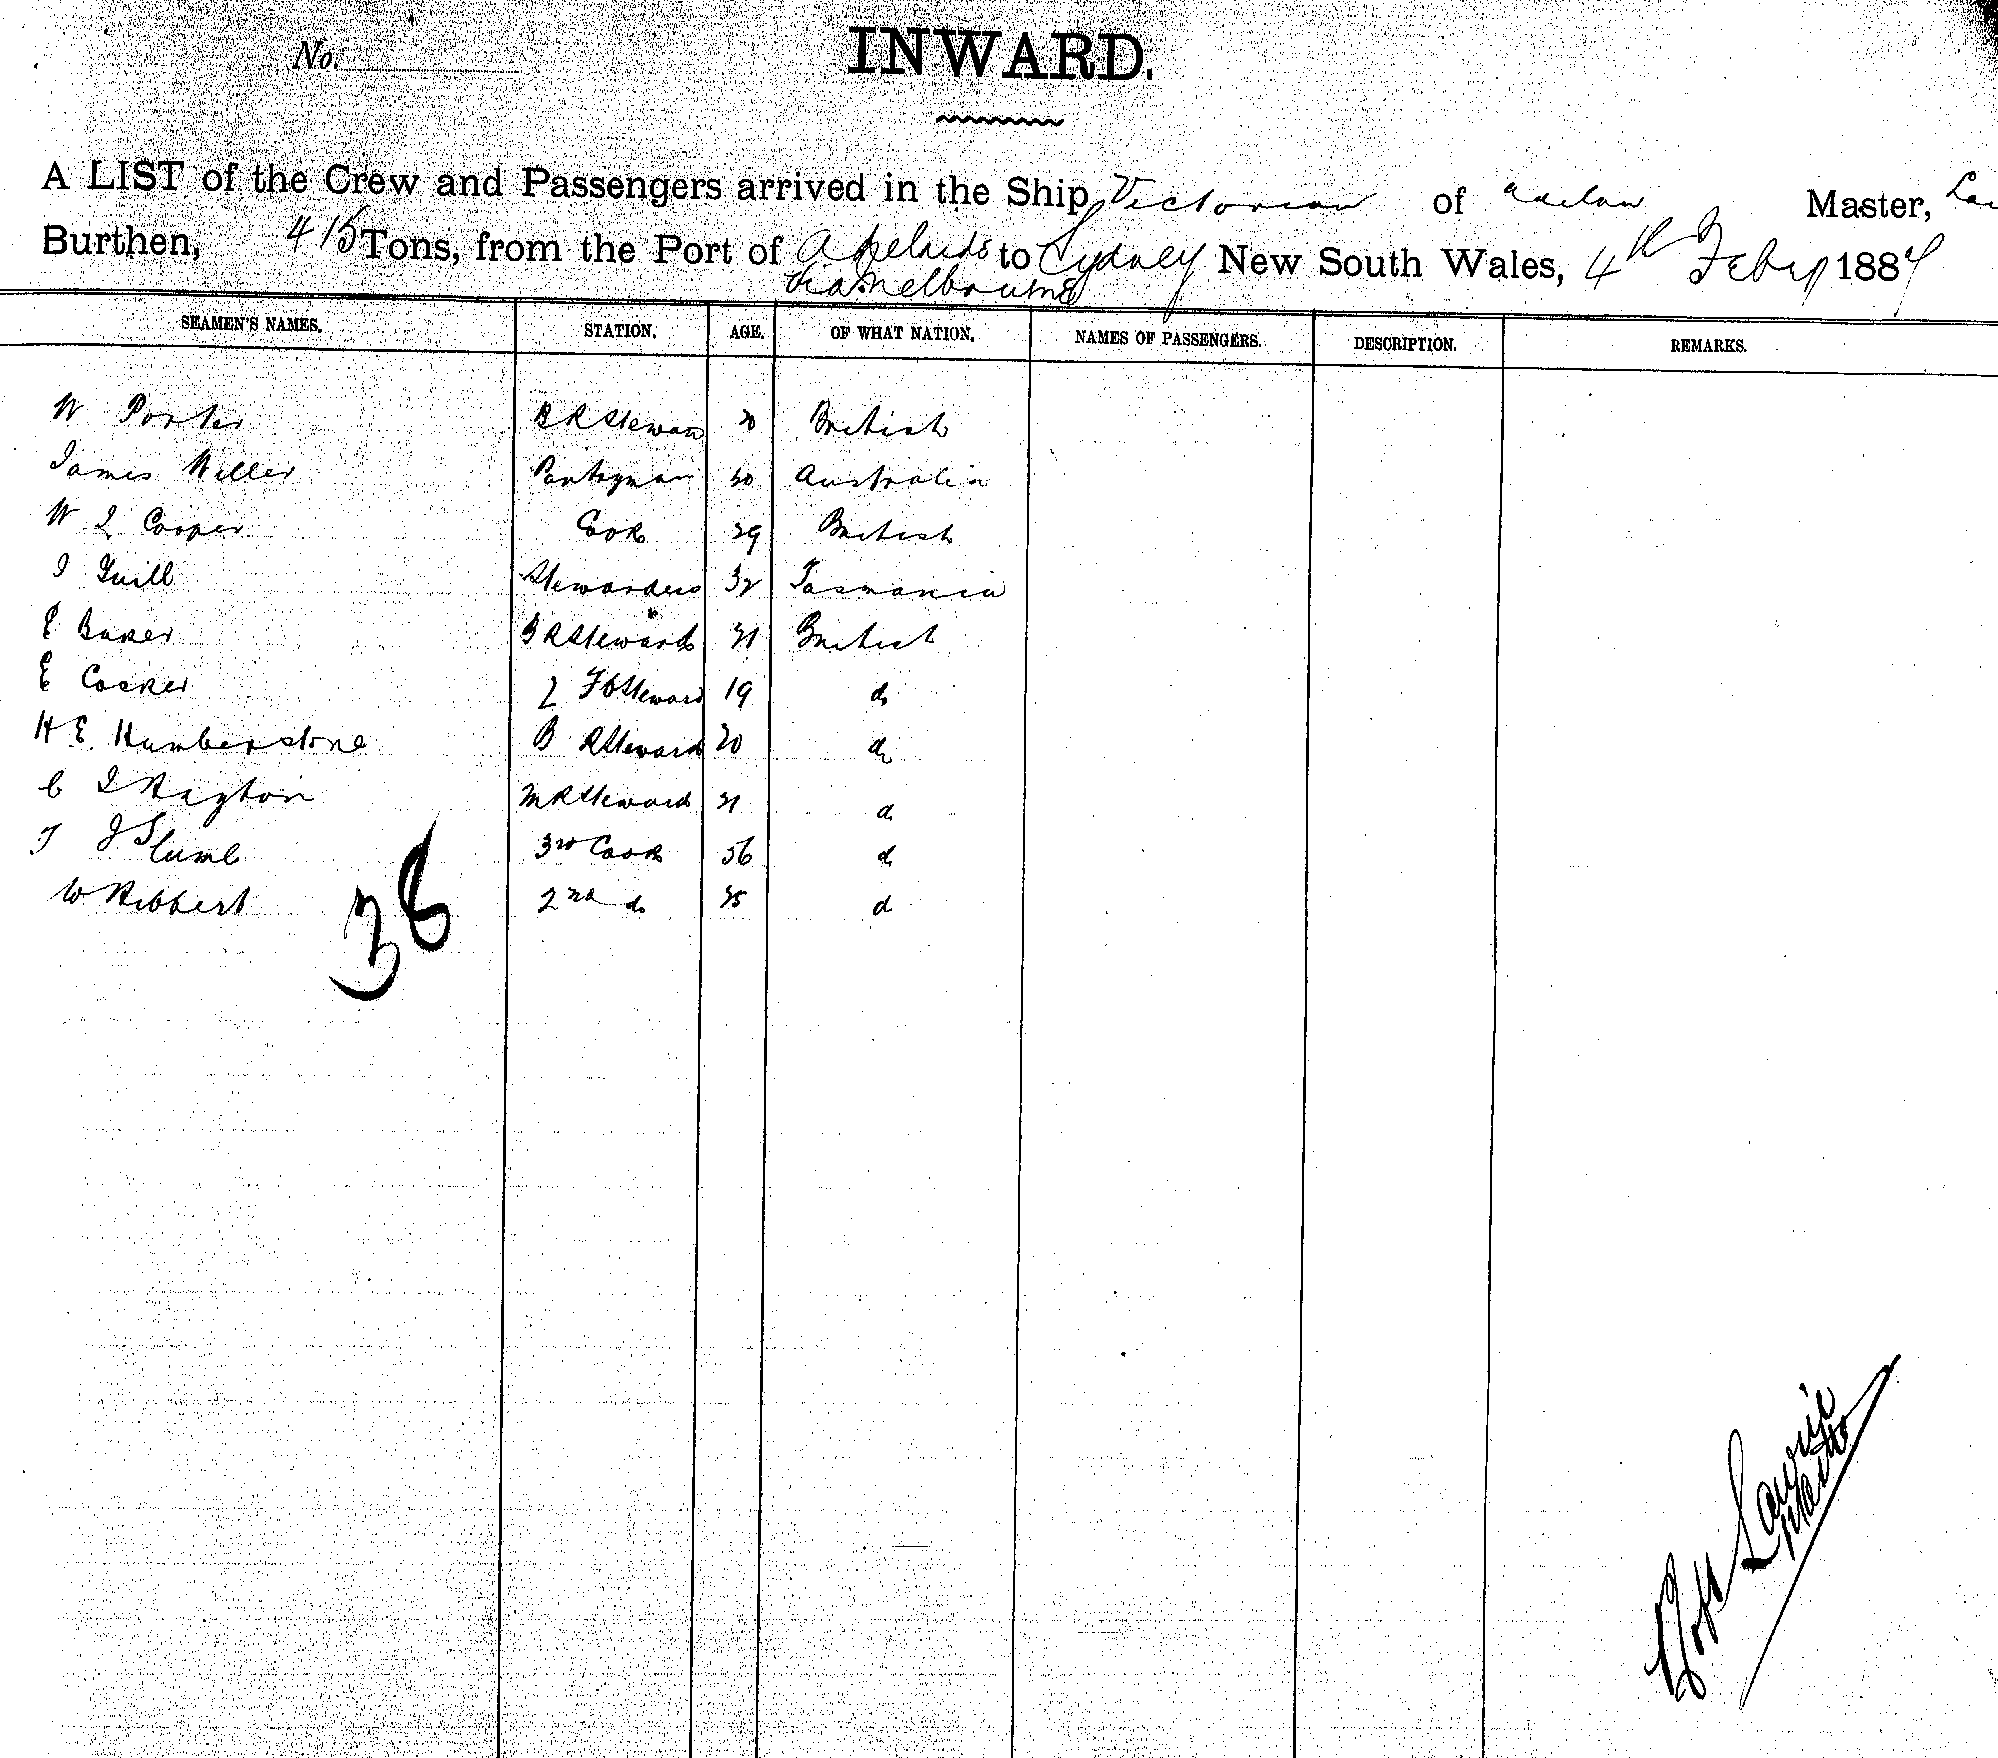 No.
INWARD.
A LIST of the Crew and Passengers arrived in the Ship Victorian of Master,
Burthen, 415 Tons, from the Port of Adelaide to Sydney New South Wales, 4th Feby 1887
Via Melbourne
SEAMEN'S NAMES. STATION. AGE. OF WHAT NATION. NAMES OF PASSENGERS. DESCRIPTION. REMARKS.
W Porter B R Steward British
James Miller Pantryman 30 Australia
W Cooper Cook 29 British
Stewardess 32 Tasmania
E Baker B R Steward 21 British
E Cocker 2 Steward 19 do
H E Humberstone B R Steward 20 do
C M R Steward 21 do
3rd Cook 56 do
W Hibbert 2nd do 25 do
36
Lawrie
Master